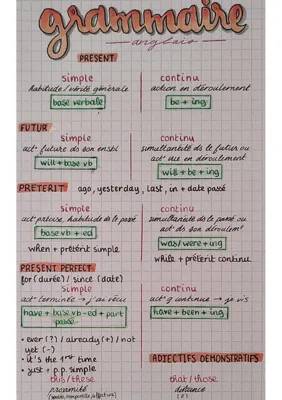 grammaire
anglais
PRESENT
simple
habitude / vérité générale
base verbale
continu
action en déroulement
be + ing
FUTUR
simple
act° future ds son ensbl
will + base vb
continu
simultanéité ds le futur ou
act° vue en déroulement
will + be + ing
PRETERIT ago, yesterday, last, in + date passé
simple
act° passée, habitude ds le passé
base vb + ed
when + prétérit simple
continu
simultanéité ds le passé ou
act° ds son déroulemt
was/were + ing
while + prétérit continue
PRESENT PERFECT
for (durée) / since (date)
simple
act° terminée → j'ai vécu
have + base vb-ed + part
passé
continu
act° continue → je vis
have + been + ing
• ever (?) / already (+) / not
yet (-)
• it's the 1st time
• just + p.p. simple
ADJECTIFS DEMONSTRATIFS
this/these
proximité
that/those
distance